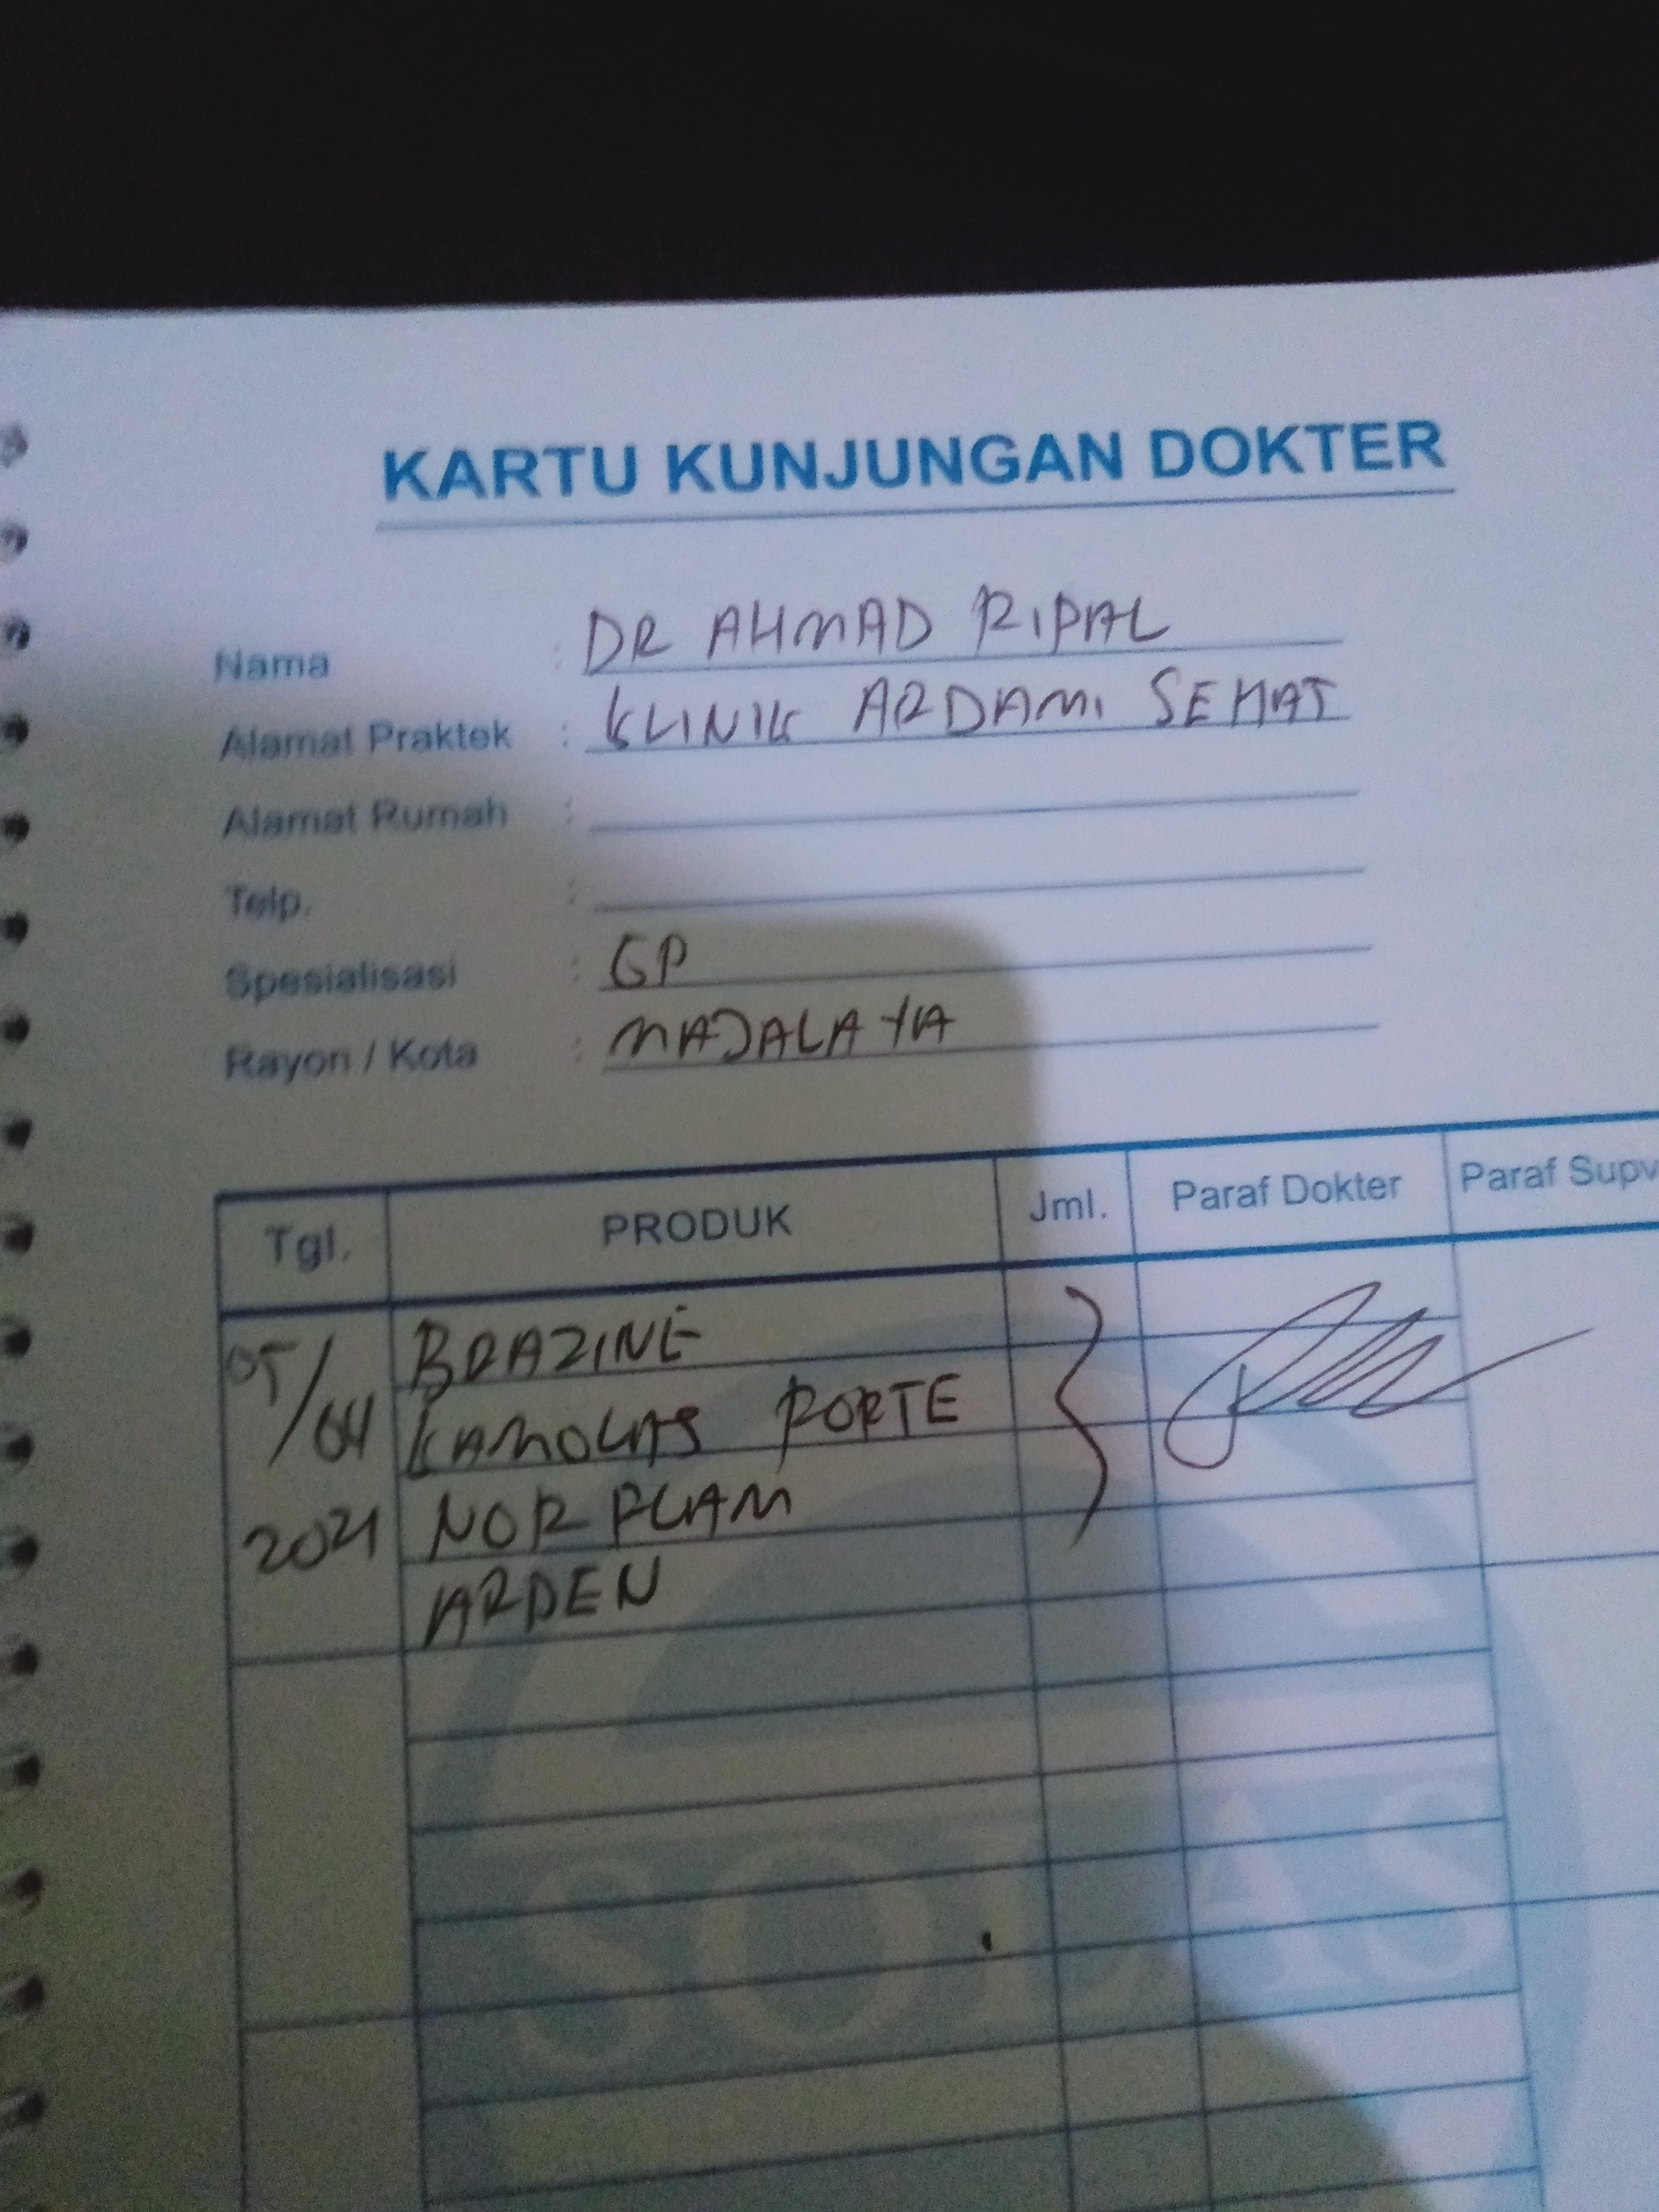 KARTU KUNJUNGAN DOKTER
Nama : DR AHMAD RIPAL
Alamat Praktek : KLINIK ARDAMI SEHAT
Alamat Rumah :
Telp. :
Spesialisasi : GP
Rayon / Kota : MAJALAYA
Tgl. PRODUK Jml. Paraf Dokter Paraf Supv
05/04 BRAZINE
KAMOLAS FORTE
2021 NOR FLAM
ARDEN
SOLAS